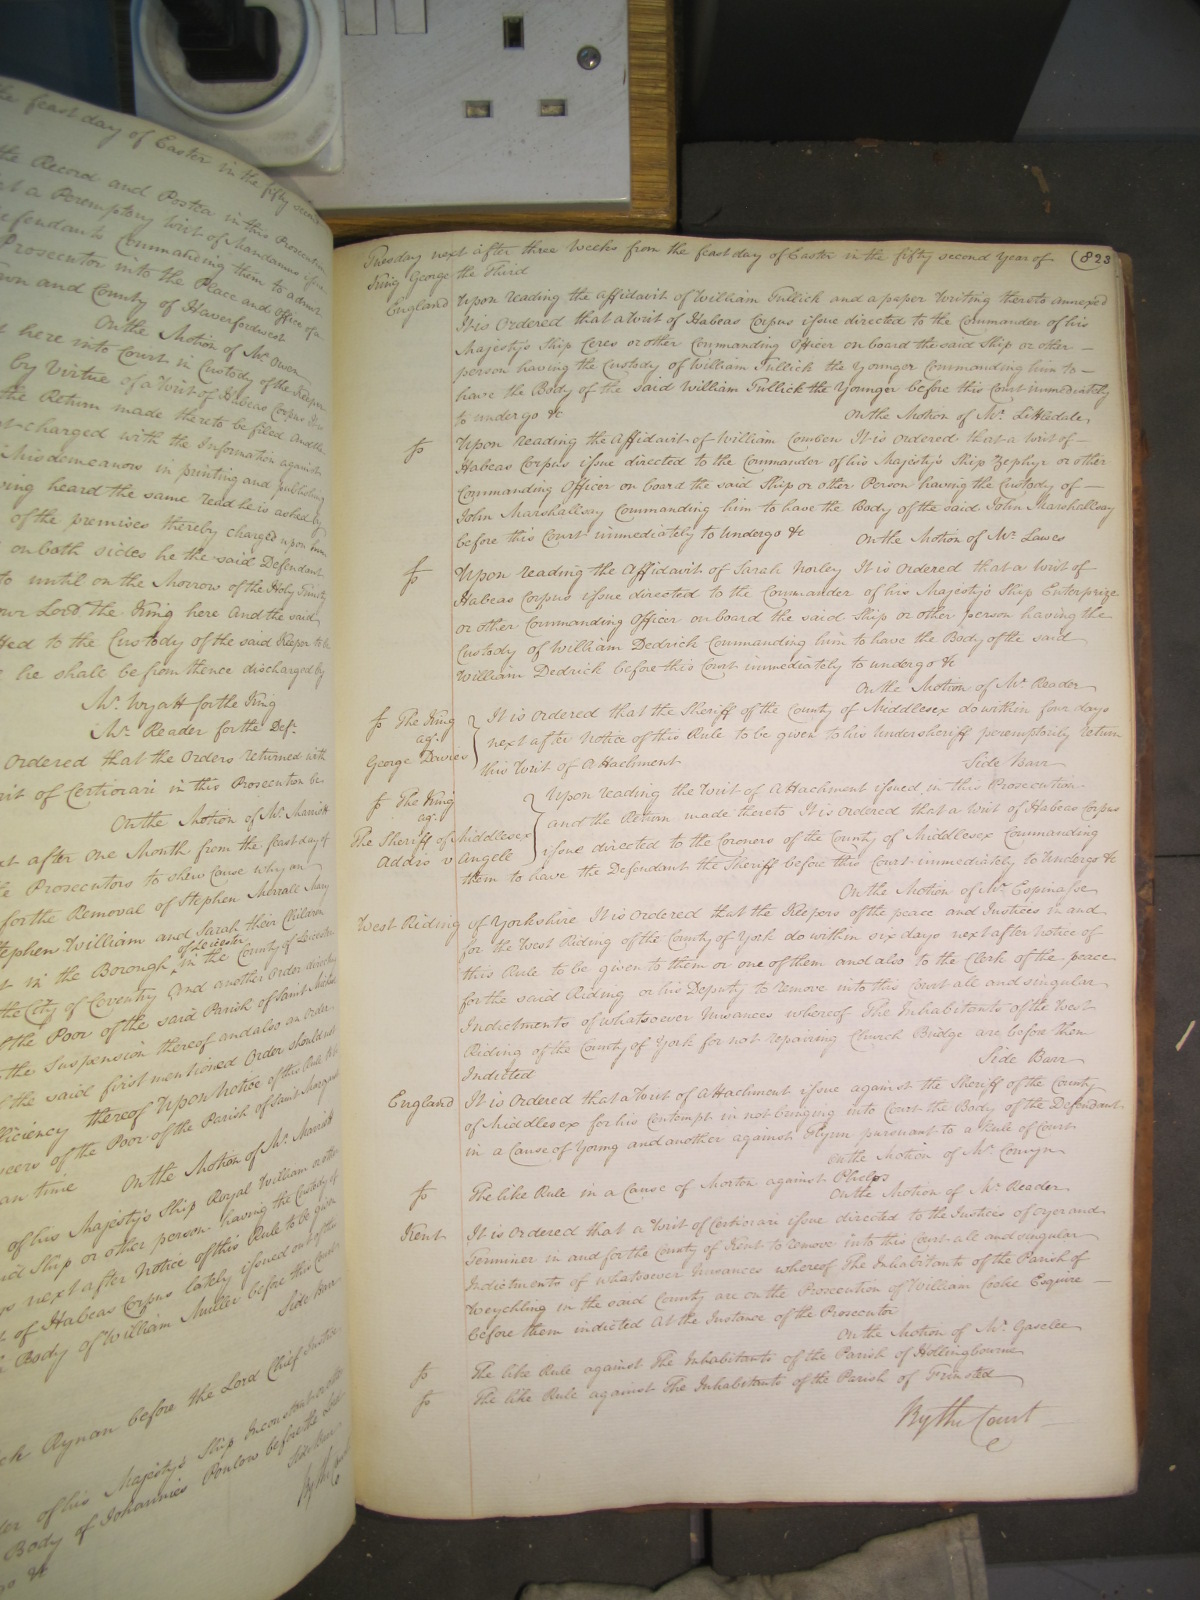 the feast day of Easter in the fifty second
the Record and Postea in this Prosecution
a Peremptory Writ of Mandamus issue
Defendants Commanding them to admit
Prosecutor into the Place and Office of a
Town and County of Haverfordwest
On the Motion of Mr. Owen
here into Court in Custody of the Keeper
by Virtue of a Writ of Habeas Corpus
the Return made thereto be filed And the
charged with the Information against
Misdemeanors in printing and publishing
having heard the same read he is asked by
of the premises thereby charged upon him
on both sides he the said Defendant
to until on the Morrow of the Holy Trinity
our Lord the King here And the said
to the Custody of the said Keeper to be
he shall be from thence discharged by
Mr. Wyatt for the King
Mr. Reader for the Deft.
Ordered that the Orders returned with
Writ of Certiorari in this Prosecution be
On the Motion of Mr. Marriott
next after one Month from the feast day of
the Prosecutors to shew Cause why an
for the Removal of Stephen Morrall Mary
Stephen William and Sarah their Children
in the Borough of Leicester in the County of Leicester
the City of Coventry And another Order directing
the Poor of the said Parish of Saint
the Suspension thereof and also an Order
the said first mentioned Order should
thereof Upon Notice of this Rule to be
of the Poor of the Parish of Saint Margaret
mean time On the Motion of Mr. Marriott
of his Majesty's Ship Royal William or other
said Ship or other person having the Custody of
next after Notice of this Rule to be given
of Habeas Corpus lately issued out of this
Body of William Muller before this Court
Side Barr
Rynan before the Lord Chief Justice
of his Majesty's Ship Inconstant or other
Body of Johannies Poulow before the Lord
Side Barr
By the Court
Tuesday next after three Weeks from the feast day of Easter in the fifty second Year of 823
King George the Third
England Upon reading the affidavit of William Tullick and a paper Writing thereto annexed
It is Ordered that a Writ of Habeas Corpus issue directed to the Commander of his
Majesty's Ship Ceres or other Commanding Officer on board the said Ship or other
person having the Custody of William Tullick the Younger Commanding him to
have the Body of the said William Tullick the Younger before this Court immediately
to undergo &c On the Motion of Mr. Littledale
fs Upon reading the Affidavit of William Comben It is ordered that a Writ of
Habeas Corpus issue directed to the Commander of his Majesty's Ship Zephyr or other
Commanding Officer on board the said Ship or other Person having the Custody of
John Marshallsay Commanding him to have the Body of the said John Marshallsay
before this Court immediately to undergo &c On the Motion of Mr. Lawes
fs Upon reading the Affidavit of Sarah Norley It is ordered that a Writ of
Habeas Corpus issue directed to the Commander of his Majesty's Ship Enterprize
or other Commanding Officer on board the said Ship or other person having the
Custody of William Dedrick Commanding him to have the Body of the said
William Dedrick before this Court immediately to undergo &c
On the Motion of Mr. Reader
fs The King It is ordered that the Sheriff of the County of Middlesex do within four days
agt. next after Notice of this Rule to be given to his Undersheriff peremptorily return
George Davies this Writ of Attachment Side Barr
fs The King Upon reading the Writ of Attachment issued in this Prosecution
agt. and the Return made thereto It is ordered that a Writ of Habeas Corpus
The Sheriff of Middlesex issue directed to the Coroners of the County of Middlesex Commanding
Addis v Angele them to have the Defendant the Sheriff before this Court immediately to undergo &c
On the Motion of Mr. Espinasse
West Riding of Yorkshire It is ordered that the Keepers of the peace and Justices in and
for the West Riding of the County of York do within six days next after notice of
this Rule to be given to them or one of them and also to the Clerk of the peace
for the said Riding or his Deputy to remove into this Court all and singular
Indictments of whatsoever Nuisances whereof The Inhabitants of the West
Riding of the County of York for not repairing Church Bridge are before them
Indicted Side Barr
England It is Ordered that a Writ of Attachment issue against the Sheriff of the County
of Middlesex for his Contempt in not bringing into Court the Body of the Defendant
in a Cause of Young and another against Flynn pursuant to a Rule of Court
On the Motion of Mr. Comyn
fs The like Rule in a Cause of Morton against Phelps
On the Motion of Mr. Reader
Kent It is Ordered that a Writ of Certiorari issue directed to the Justices of oyer and
Terminer in and for the County of Kent to remove into this Court all and singular
Indictments of whatsoever Nuisances whereof The Inhabitants of the Parish of
Weychling in the said County are on the Prosecution of William Cooke Esquire
before them indicted At the Instance of the Prosecutor
On the Motion of Mr. Gaselee
fs The like Rule against The Inhabitants of the Parish of Hollingbourne
fs The like Rule against The Inhabitants of the Parish of Frinsted
By the Court